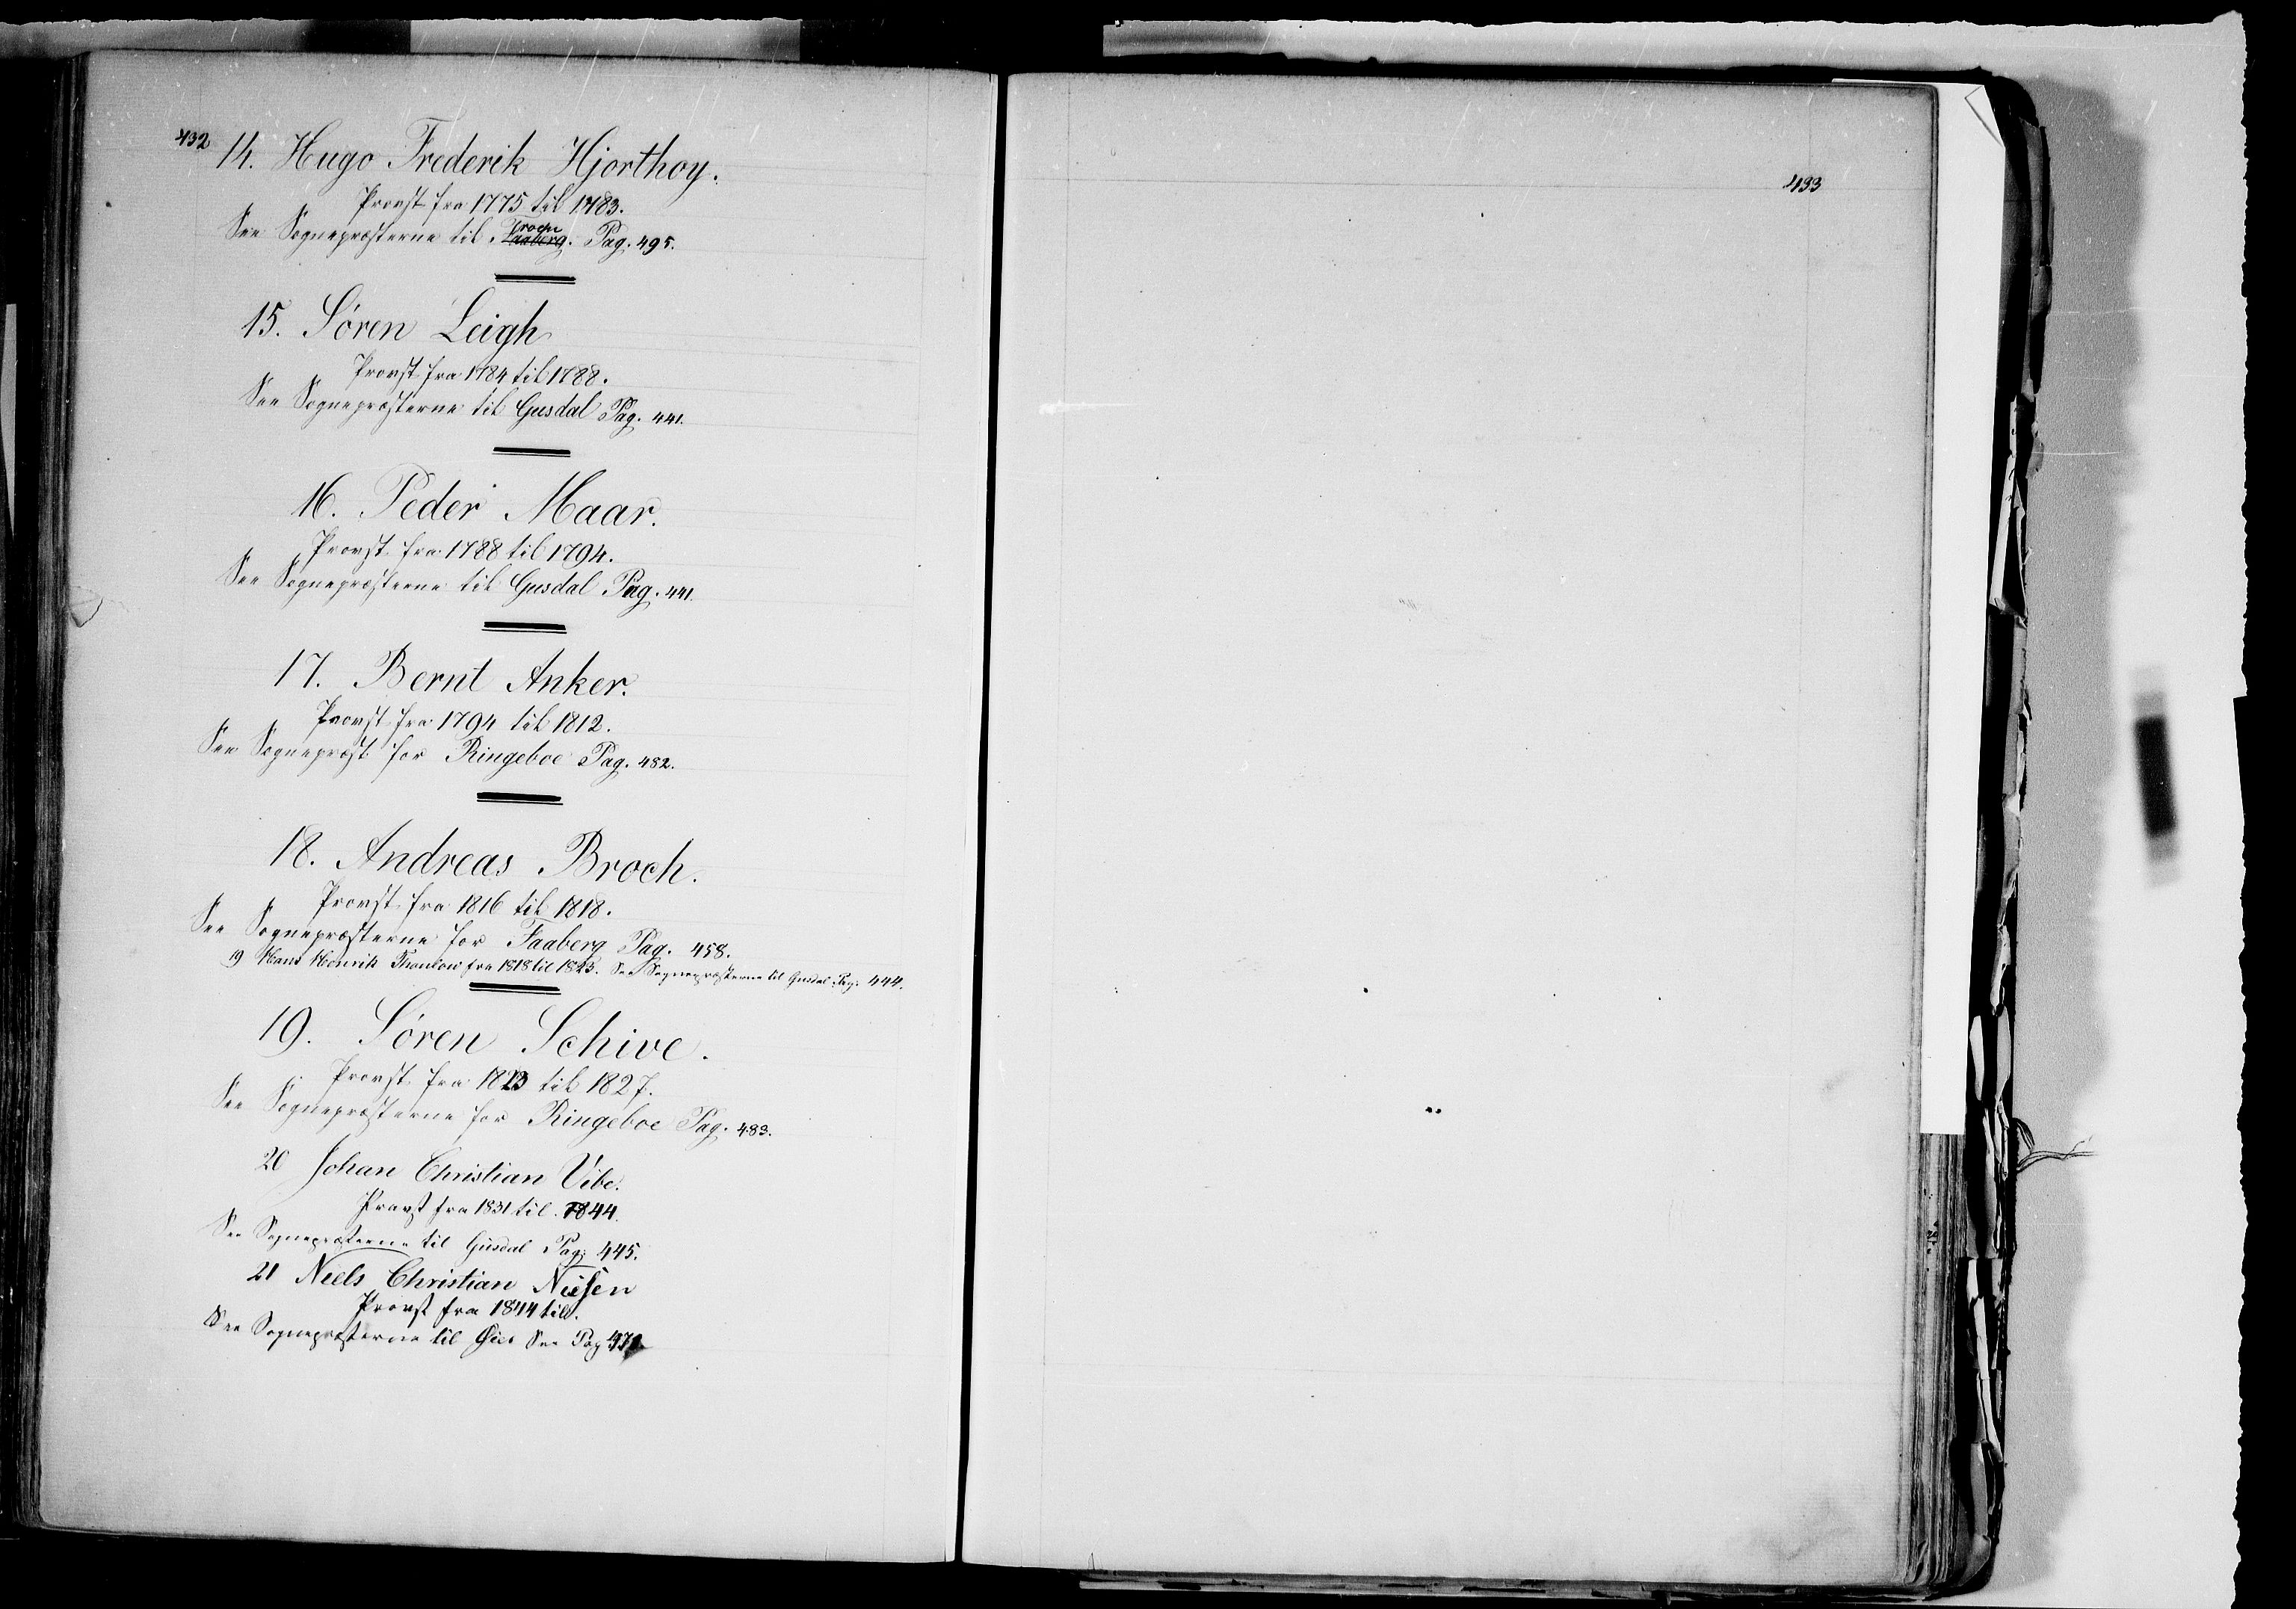 432
14. Hugo Frederik Hjorthoy.
Provst fra 1775 til 1783.
See Sognepræsterne til Faaberg. Pag. 495.
15. Sören Leigh
Provst fra 1784 til 1788.
See Sognepræsterne til Gusdal Pag. 441.
16. Peder Maar.
Provst fra 1788 til 1794.
See Sognepræsterne til Gusdal Pag. 441.
17. Bernt Anker.
Provst fra 1794 til 1812.
See Sognepræst for Ringeboe Pag. 482.
18. Andreas Broch.
Provst fra 1816 til 1818.
See Sognepræsterne for Faaberg Pag. 458.
19 Hans Henrik Thaulow fra 1818 til 1823. See Sognepræsterne til Gusdal Pag. 444.
19. Sören Schive.
Provst fra 1823 til 1827.
See Sognepræsterne for Ringeboe Pag. 483.
20 Johan Christian Vibe.
Provst fra 1831 til 1844.
See Sognepræsterne til Gusdal Pag. 445.
21 Niels Christian Nielsen
Provst fra 1844 til.
See Sognepræsterne til Öier See Pag
433